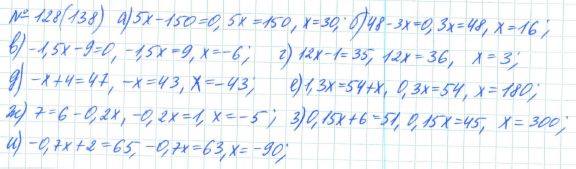 № 128(138) а) 5x-150=0, 5x=150, x=30; б) 48-3x=0, 3x=48, x=16;
в) -1,5x-9=0, -1,5x=9, x=-6; г) 12x-1=35, 12x=36, x=3;
д) -x+4=47, -x=43, x=-43; е) 1,3x=54+x, 0,3x=54, x=180;
ж) 7=6-0,2x, -0,2x=1, x=-5; з) 0,15x+6=51, 0,15x=45, x=300;
и) -0,7x+2=65, -0,7x=63, x=-90;